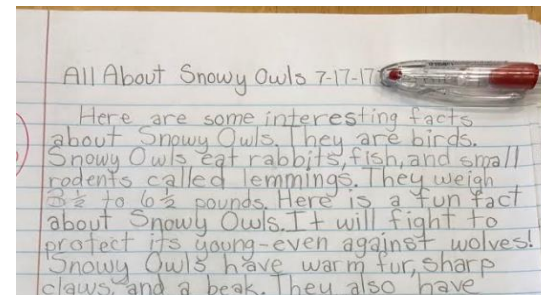 All About Snowy Owls 7-17-17
Here are some interesting facts
about Snowy Owls. They are birds.
Snowy Owls eat rabbits, fish, and small
rodents called lemmings. They weigh
3½ to 6½ pounds. Here is a fun fact
about Snowy Owls. It will fight to
protect its young-even against wolves!
Snowy Owls have warm fur, sharp
claws, and a beak. They also have